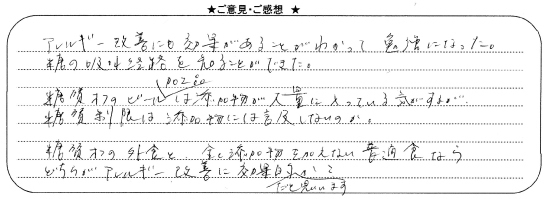 ★ご意見・ご感想 ★
アレルギー改善にも効果があることがわかって勉強になった。
糖の吸収経路を知ることができた。
糖質オフのビールは添加物が大量に入っている気がするが
糖質制限は添加物には言及しないのか。
糖質オフの外食と、全く添加物を加えない普通食なら
どちらがアレルギー改善に効果的か？
だと思いますか